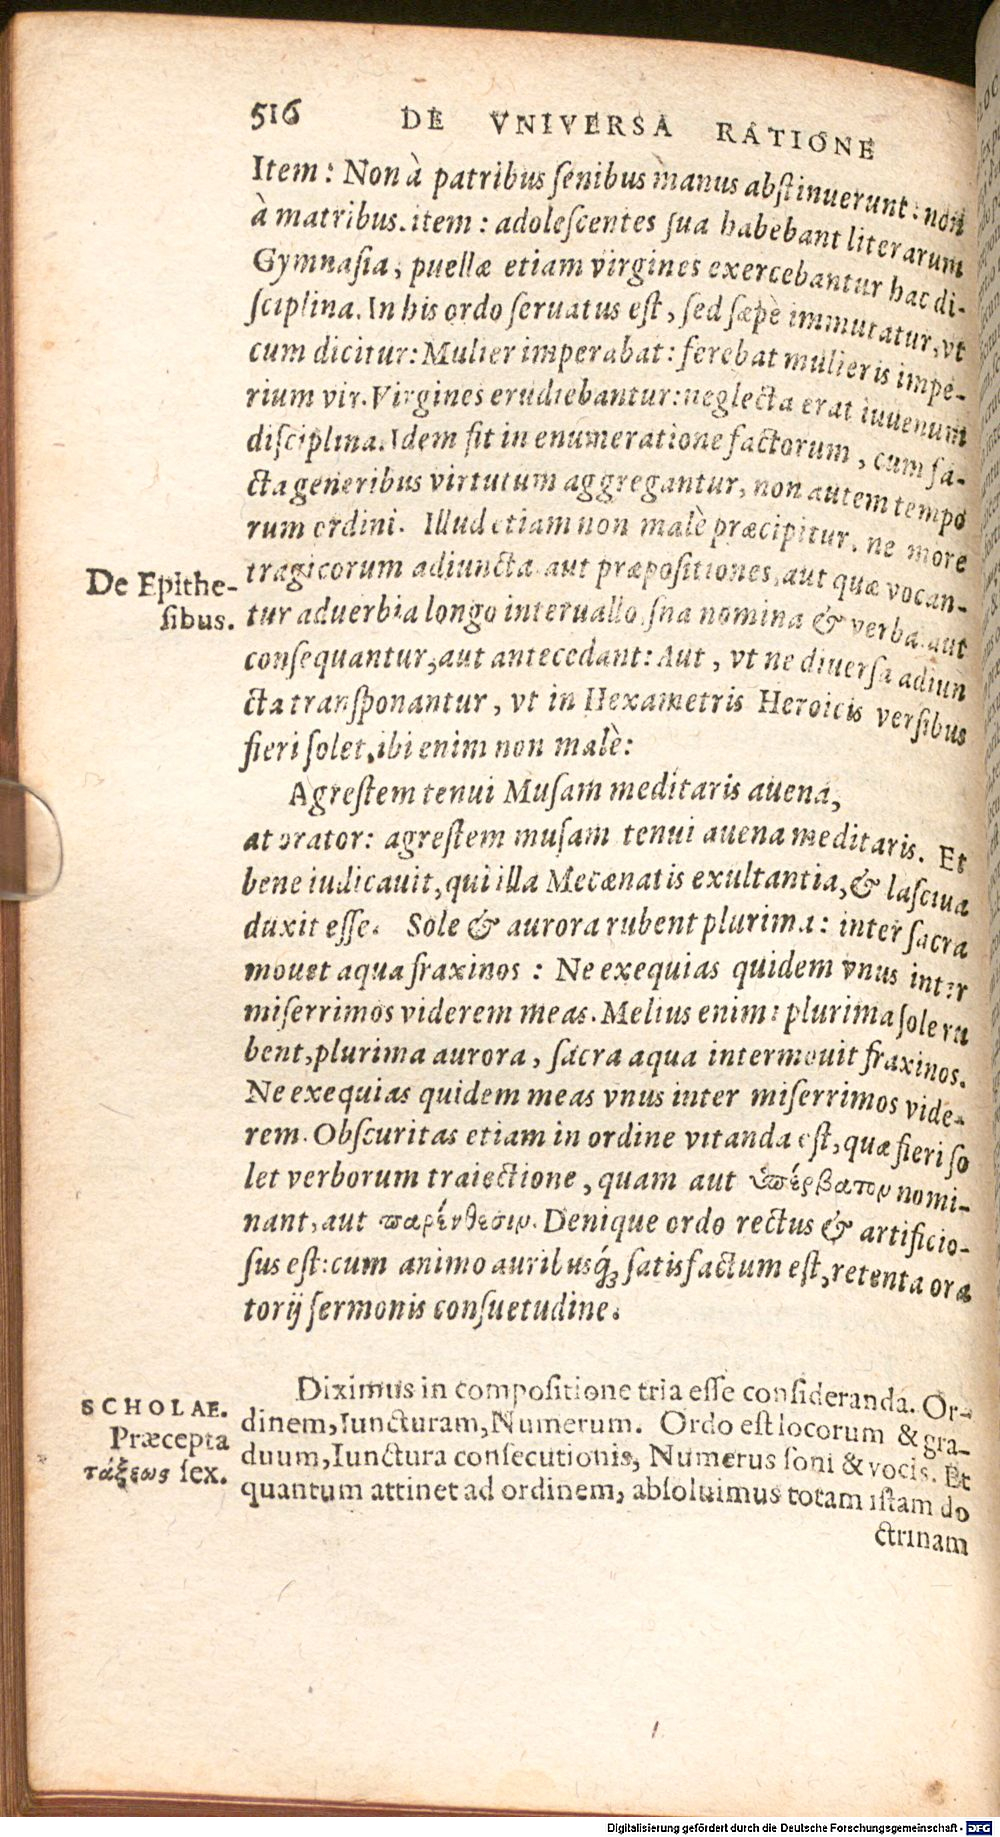 516 DE VNIVERSA RATIONE
Item: Non à patribus senibus manus abstinuerunt: non
à matribus. item: adolescentes sua habebant literarum
Gymnasia, puellæ etiam virgines exercebantur hac di-
sciplina. In his ordo seruatus est, sed sæpè immutatur, vt
cum dicitur: Mulier imperabat: ferebat mulieris impe-
rium vir. Virgines erudiebantur: neglecta erat iuuenum
disciplina. Idem fit in enumeratione factorum, cum fa-
cta generibus virtutum aggregantur, non autem tempo
rum ordini. Illud etiam non malè præcipitur, ne more
De Epithe-
sibus.
tragicorum adiuncta aut præpositiones, aut quæ vocan-
tur aduerbia longo interuallo sna nomina & verba aut
consequantur, aut antecedant: Aut, vt ne diuersa adiun
cta transponantur, vt in Hexametris Heroicis versibus
fieri solet, ibi enim non malè:
Agrestem tenui Musam meditaris auena,
at orator: agrestem musam tenui auena meditaris. Et
bene iudicauit, qui illa Mecænatis exultantia, & lasciua
duxit esse. Sole & aurora rubent plurima: inter sacra
mouet aqua fraxinos: Ne exequias quidem vnus inter
miserrimos viderem meas. Melius enim: plurima sole ru
bent, plurima aurora, sacra aqua inter mouit fraxinos.
Ne exequias quidem meas vnus inter miserrimos vide-
rem. Obscuritas etiam in ordine vitanda est, quæ fieri so
let verborum traiectione, quam aut ὑπέρβατον nomi-
nant, aut παρένθεσιν. Denique ordo rectus & artificio-
sus est: cum animo auribusq́; satisfactum est, retenta ora
torij sermonis consuetudine.
SCHOLAE.
Præcepta
τάξεως sex.
Diximus in compositione tria esse consideranda. Or-
dinem, Iuncturam, Numerum. Ordo est locorum & gra-
duum, Iunctura consecutionis, Numerus soni & vocis. Et
quantum attinet ad ordinem, absoluimus totam istam do
ctrinam
Digitalisierung gefördert durch die Deutsche Forschungsgemeinschaft - DFG